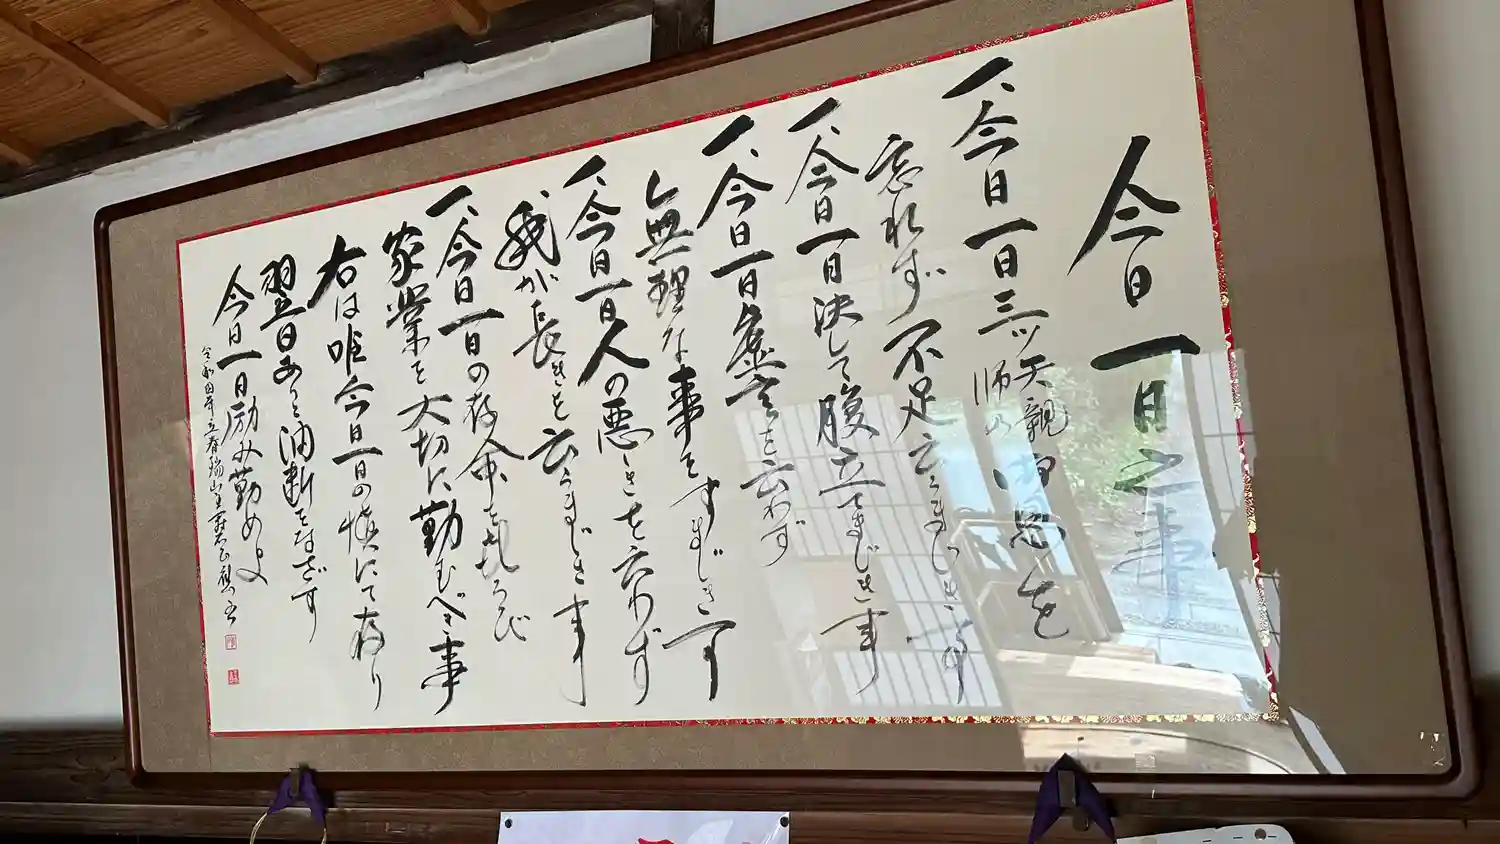 今日一日之事
一、今日一日三ツ天親師の御恩を
忘れず不足云うまじき事
一、今日一日決して腹立てまじき事
一、今日一日虚言を云わず
無理な事をすまじき事
一、今日一日人の悪しきを云わず
我が長きを云うまじき事
一、今日一日の存命を
家業を大切に勤むべき事
右は唯今日一日の慎にて存り
翌日ありと油断をなさず
今日一日励み勤めよ
令和四年立春瑞山